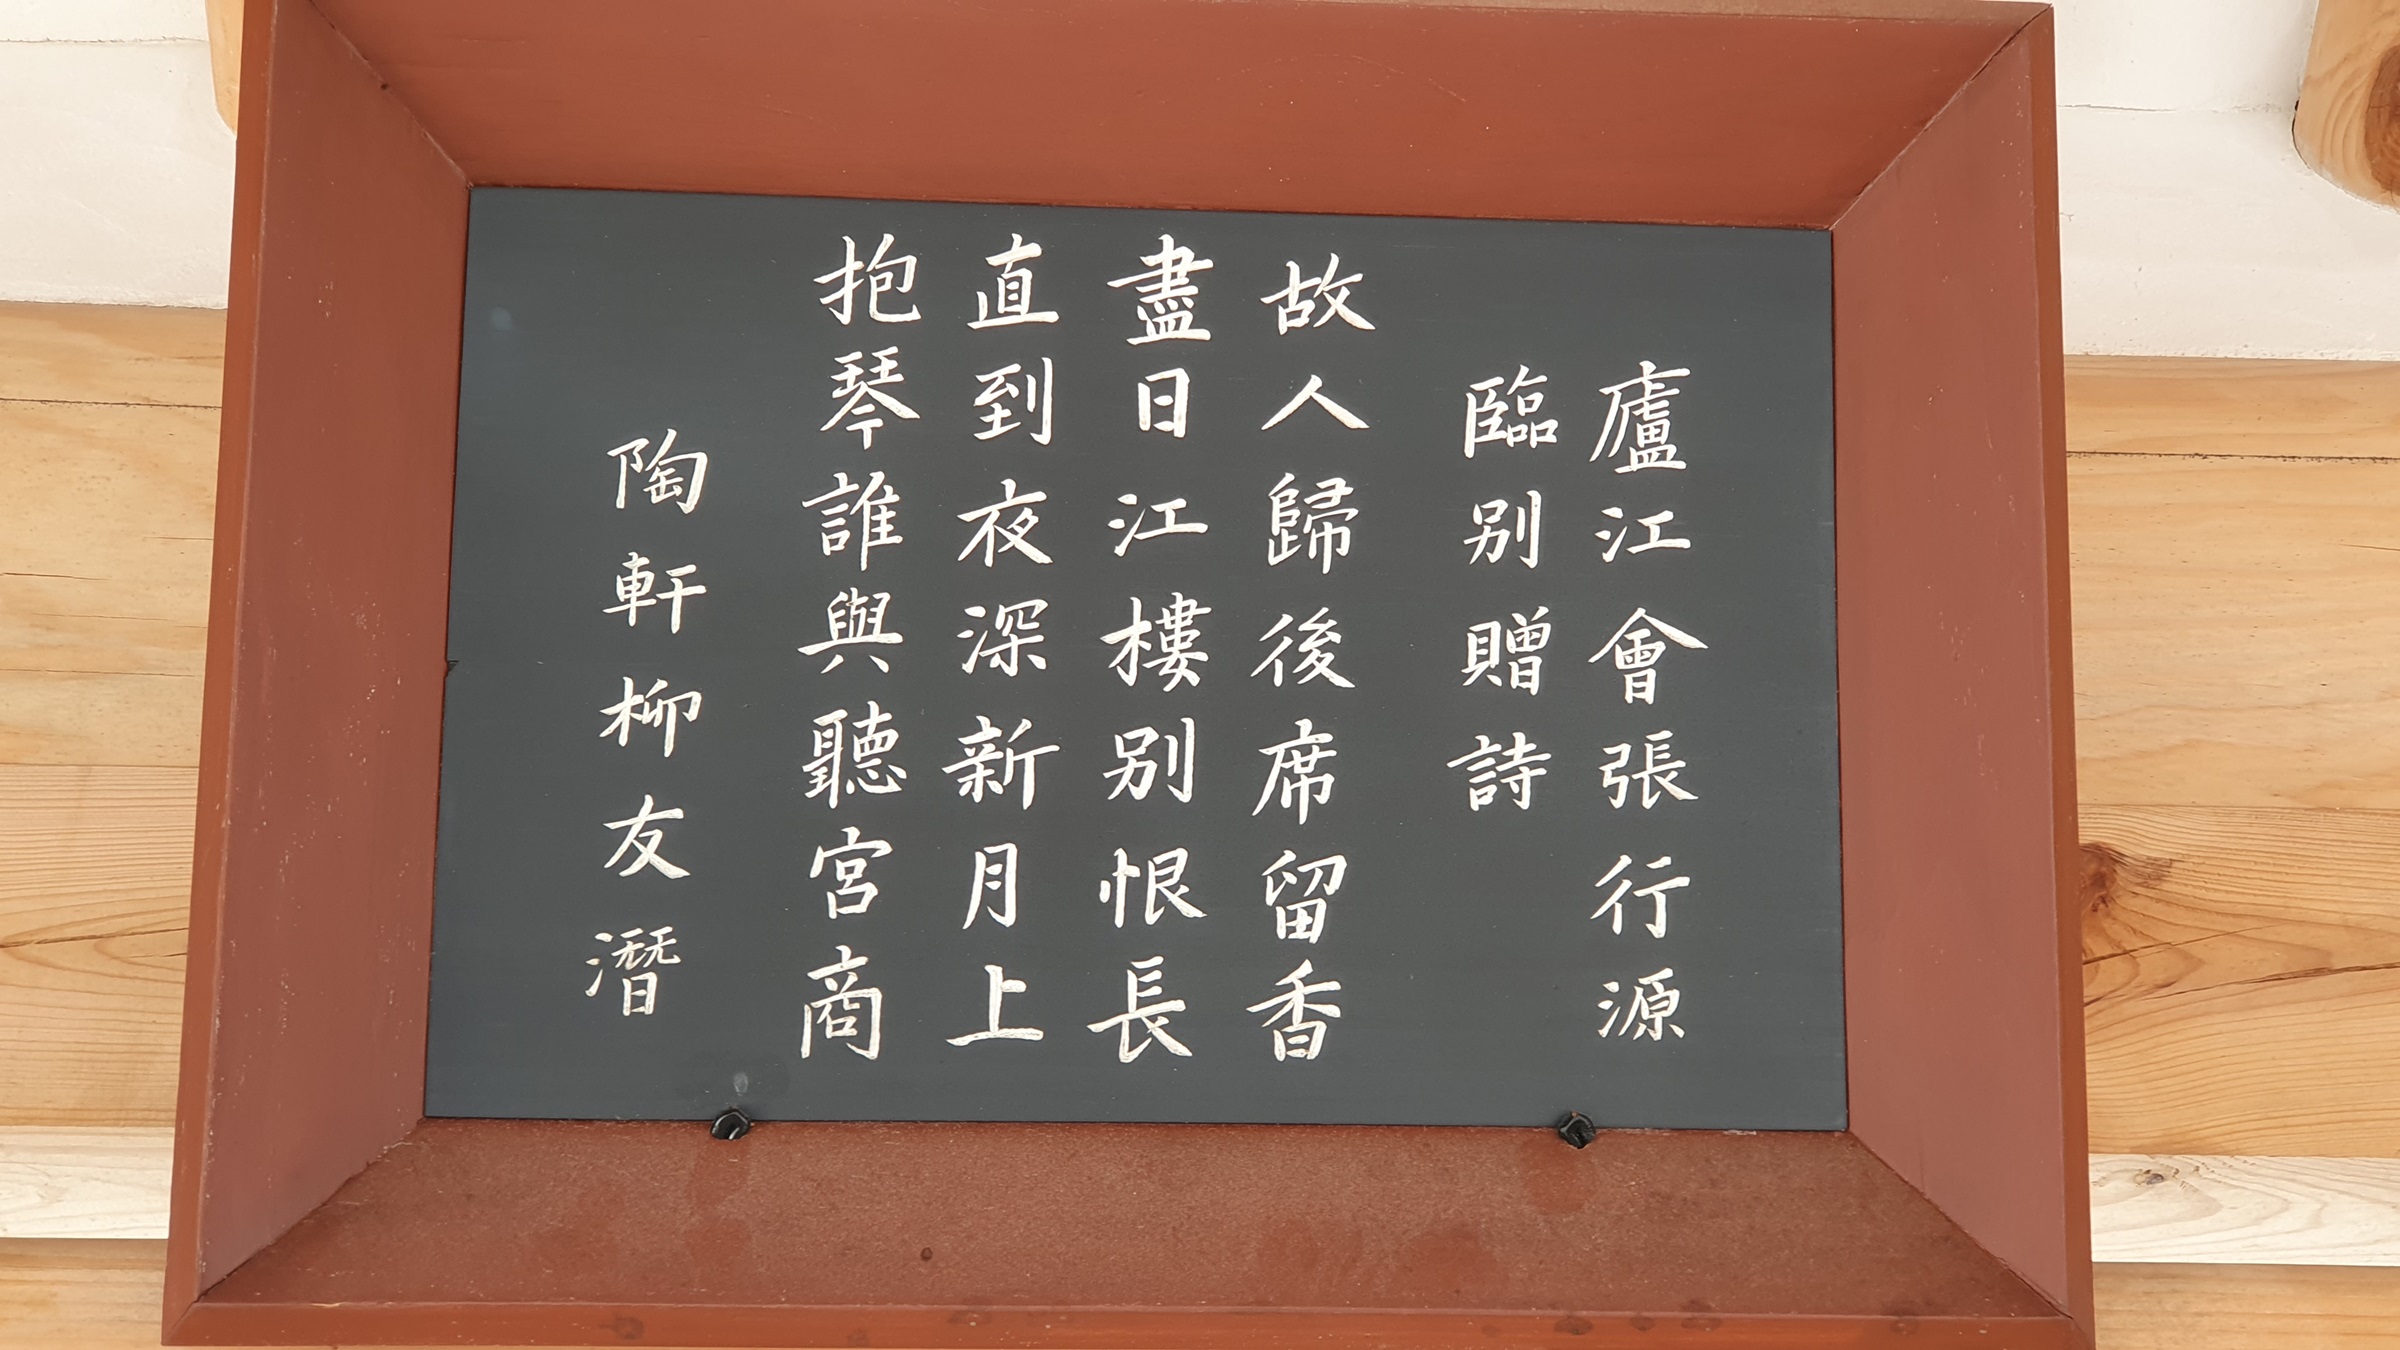 廬江會張行源
臨别贈詩
故人歸後席留香
盡日江樓别恨長
直到夜深新月上
抱琴誰與聽宮商
陶軒柳友潛